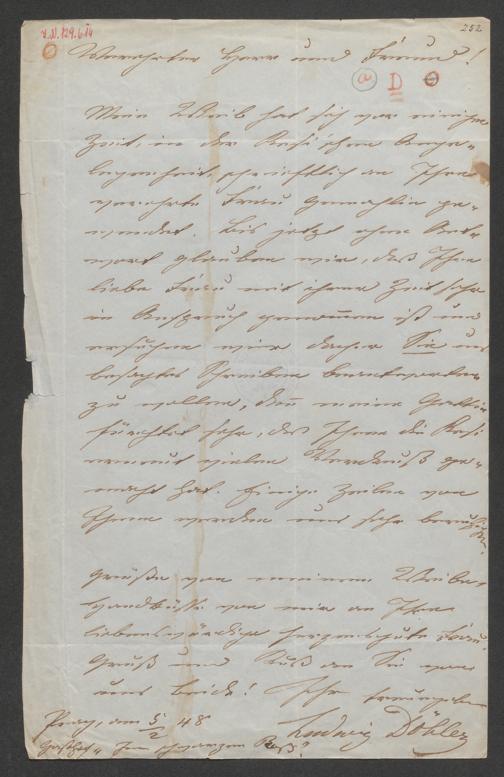 V.N. 129.614
252
Verehrter Herr und Freund!
a D
Mein Weib hat sich vor einiger
Zeit, in der Rosi'schen Ange-
legenheit, schriftlich an Ihre
verehrte Frau Gemahlin ge-
wendet. Bis jetzt ohne Ant-
wort glauben wir, daß Ihre
liebe Frau mit ihrer Zeit sehr
in Anspruch genommen ist und
ersuchen wir daher Sie uns
besagtes Schreiben beantworten
zu wollen, den meine Gattin
fürchtet sehr, das Ihnen die Rosi
erneut vielen Verdruß ge-
macht hat. Einige Zeilen von
Ihnen werden uns sehr
Grüße von meinem Weibe,
Handküße von mir an Ihre
liebenswürdige herzensgute Frau.
Gruß und Kuß an Sie von
uns beide! Ihr
Prag, den 5/2 48 Ludwig Döbler
Gasthof "Zum schwarzen Roß"